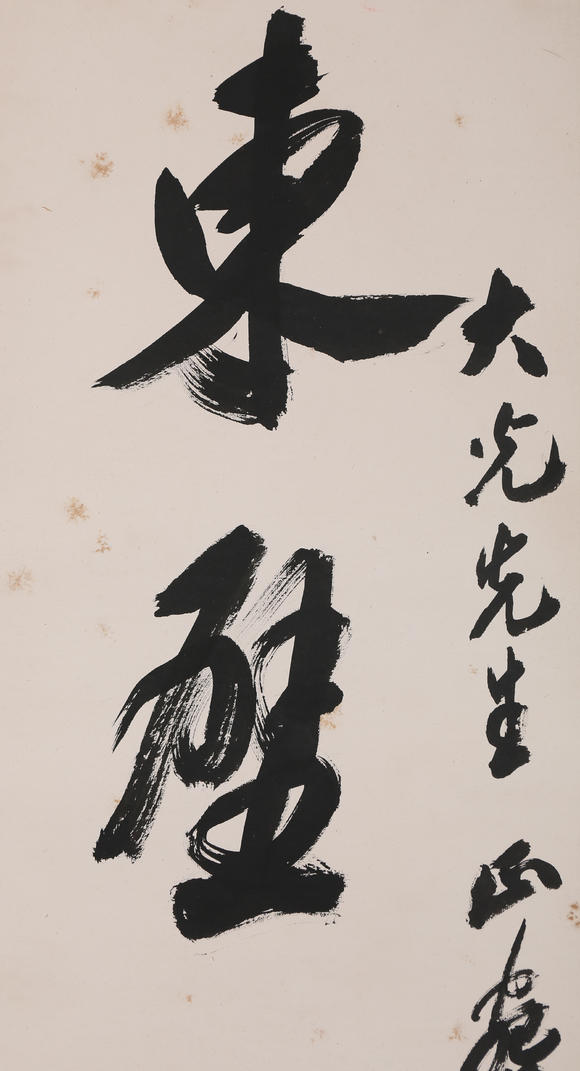 大光先生 正
東壁